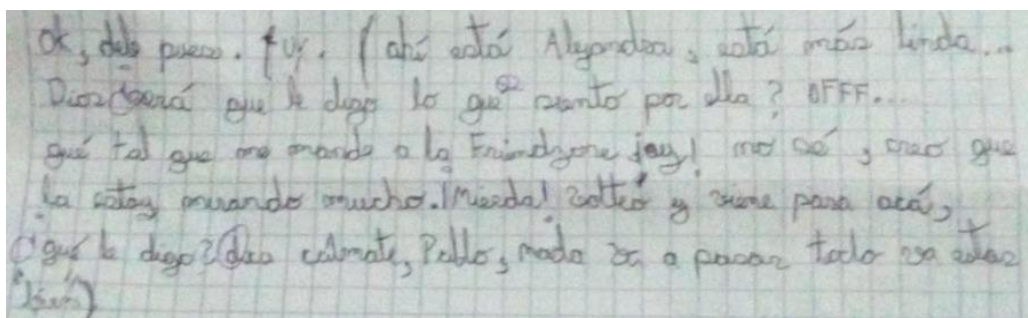 ok, dale pues. fuy. (ahí está Alejandra, está más linda...
Dios ¿será que le digo lo que siento por ella? OFFF...
qué tal que me mande a la Friendzone jay! no sé, creo que
la estoy mirando mucho. ¡Mierda! volteó y viene para acá,
¿qué le digo? calmate, Pablo, nada va a pasar todo va estar
bien)